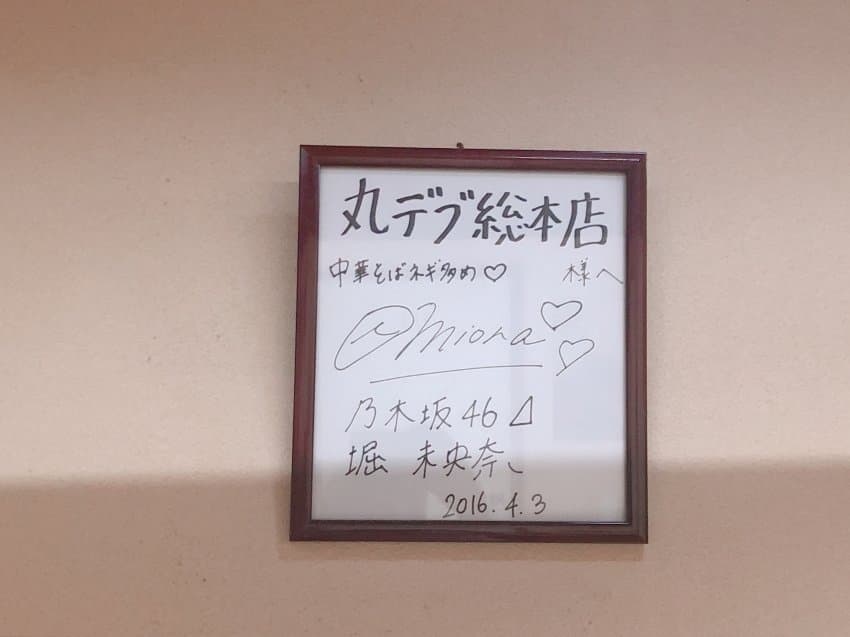 丸デブ総本店
中華そばネギ多め♡ 様へ
@miona♡♡
乃木坂46⊿
堀 未央奈
2016.4.3